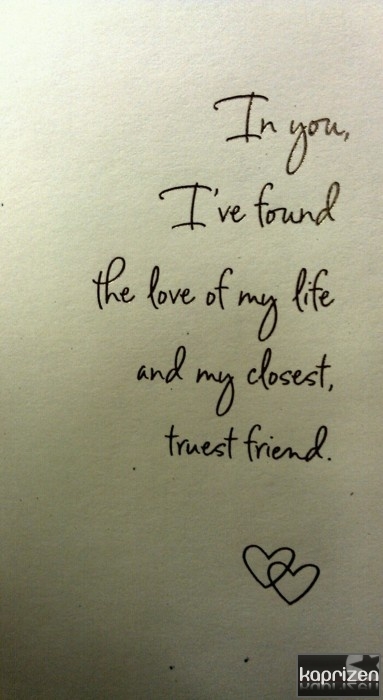 In you,
I've found
the love of my life
and my closest,
truest friend.
kaprizen